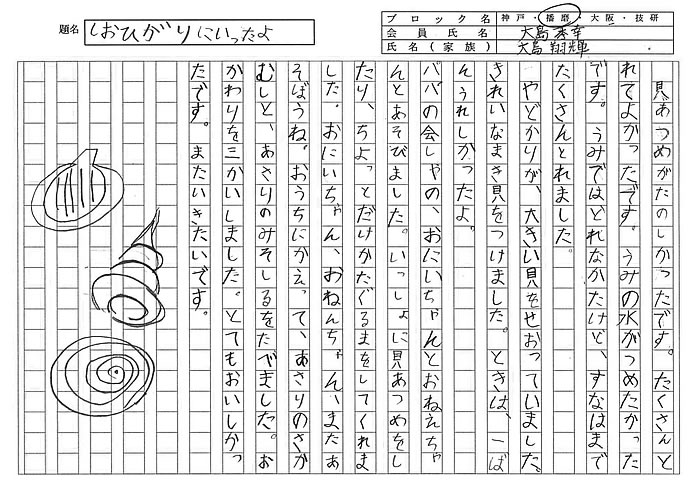 題名 しおひがりにいったよ
ブロック名 神戸・播磨・大阪・技研
会員氏名 大島 秀幸
氏名(家族) 大島 翔輝
貝あつめがたのしかったです。たくさんと
れてよかったです。うみの水がつめたかった
です。うみではとれなかたけど、すなはまで
たくさんとれました。
やどかりが、大きい貝をせおっていました。
きれいなまき貝をつけました。ときは、一ば
んうれしかったよ。
パパの会しゃの、おにいちゃんとおねえちゃ
んとあそびました。いっしょに貝あつめをし
たり、ちょっとだけかたぐるまをしてくれま
した。おにいちゃん、おねんちゃん、またあ
そぼうね。おうちにかえって、あさりのさか
むしと、あさりのみそしるをたでました。お
かわりを三かいしました。とてもおいしかっ
たです。またいきたいです。